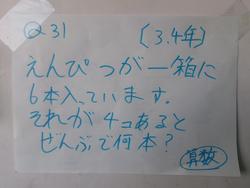 Q31 〔3.4年〕
えんぴつが一箱に
6本入っています.
それが4コあると
ぜんぶで何本?
算数